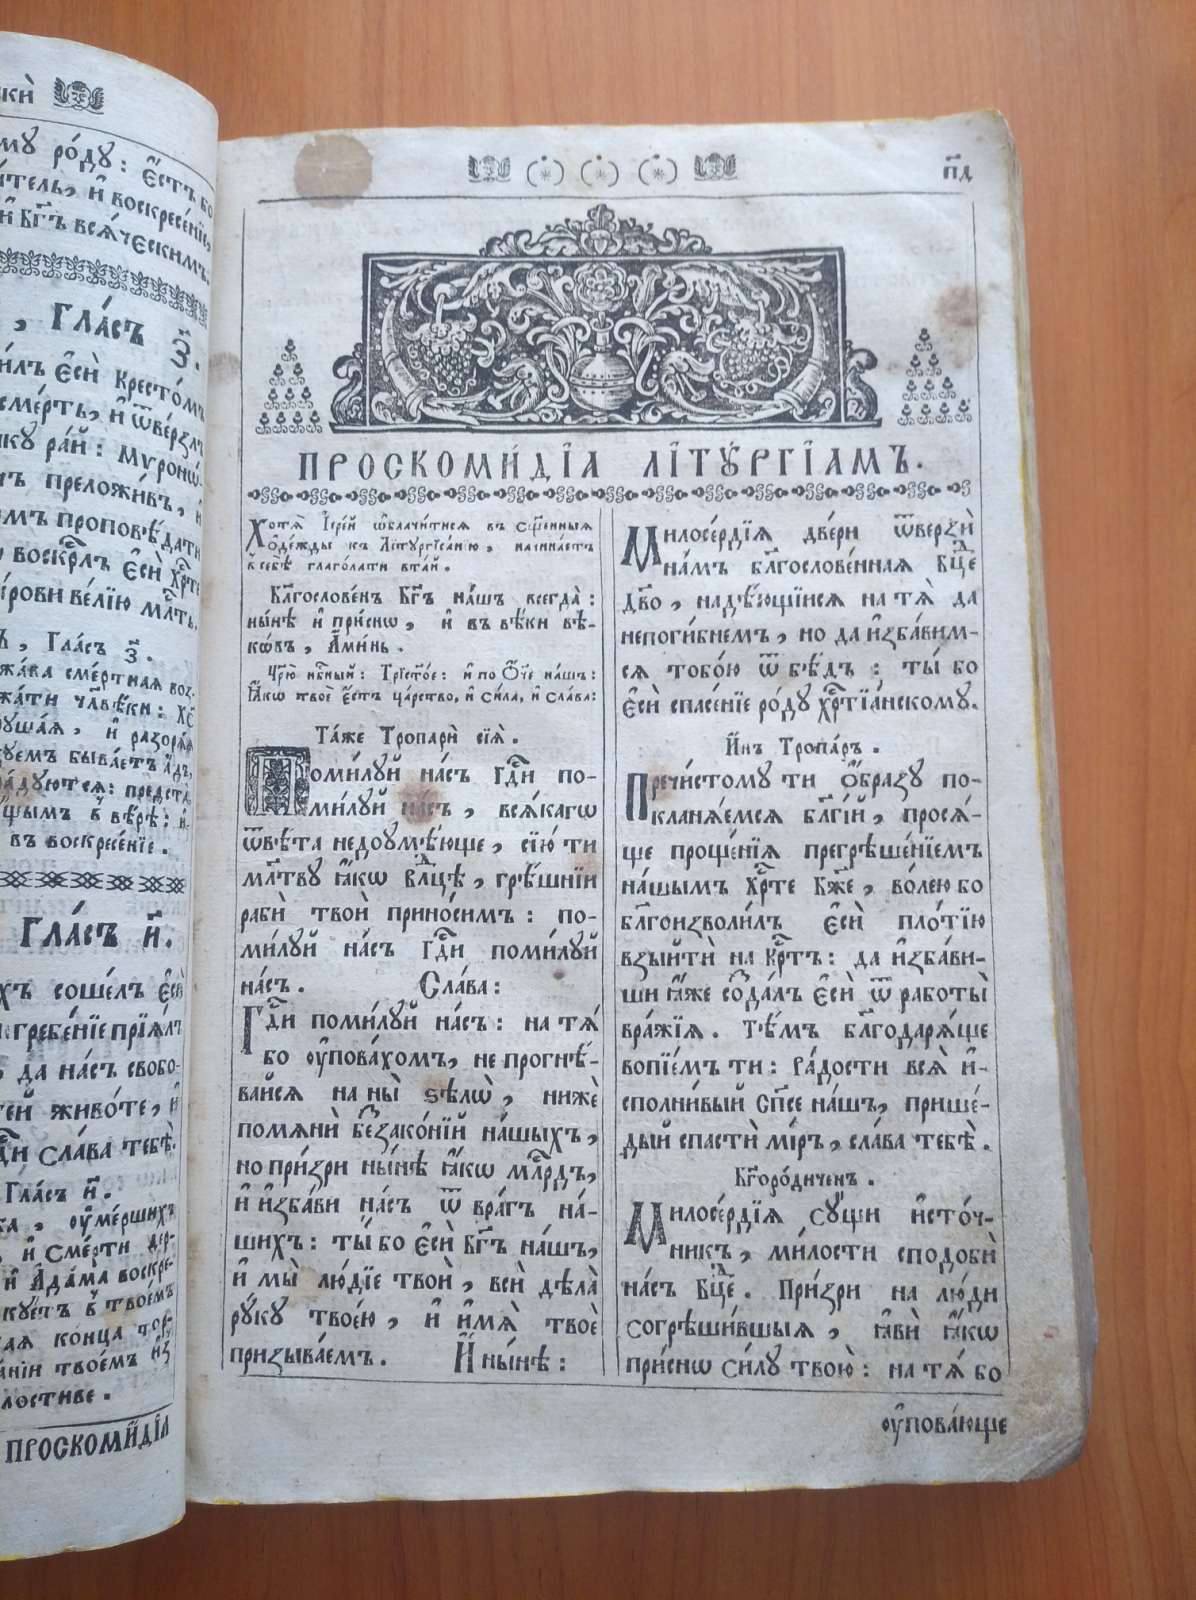 кѝ
му ро́ду: є҆́стъ бо
и́тель, и҆ воскресе́нїе,
и҆ Бг҃ъ всѧ́ческимъ.
, Гла́съ з҃.
и́лъ є҆сѝ Кресто́мъ
сме́рть, и҆ ѿве́рзлъ
ра́й: мѵроно́-
преложи́въ, и҆
проповѣ́дати
воскр҃лъ є҆сѝ Хрⷭ҇те
ве́лїю млⷭ҇ть.
, Гла́съ з҃.
жа́ва сме́ртнаѧ воз-
жа́ти чл҃вѣ́ки: Хс҃
руша́ѧ, и҆ разорѧ́ѧ
быва́етъ а҆́дъ,
ра́дуютсѧ:
щымъ в̾ вѣ́рѣ: и҆-
въ воскресе́нїе.
Гла́съ и҃.
хъ соше́лъ є҆сѝ
погребе́нїе прїѧ́лъ
, да на́съ свобо-
животе́, и҆
ди сла́ва тебѣ̀.
Гла́съ и҃.
, ѹ҆ме́рших
, и҆ сме́рти дер-
и҆ А҆да́ма воскре-
ку́етъ в̾ твое́мъ
конца̀ тор-
твое́мъ и҆з
лостиве.
ПРОСКОМИ́ДЇѦ
п҃д
ПРОСКОМИ́ДЇѦ ЛЇТУ́РГЇАМЪ.
Хотѧ̀ І҆ере́й ѡ҆блачи́тисѧ въ сщ҃е́нныѧ
ѻ҆де́жды къ Лїтургїса́нїю, начина́етъ
в̾ себѣ̀ глаго́лати вта́й.
Бл҃гослове́нъ Бг҃ъ на́шъ всегда̀:
ны́нѣ и҆ при́сно, и҆ въ вѣ́ки вѣ-
кѡ́въ, А҆ми́нь.
Цр҃ю̀ нбⷭ҇ный: Трїсто́е: и҆ по Ѻ҆́ч҃е на́шъ:
Ꙗ҆́кѡ твоѐ є҆́стъ ца́рство, и҆ си́ла, и҆ сла́ва:
Та́же Тропарѝ сїѧ̀.
Поми́луй на́съ гдⷭ҇и по-
ми́луй на́съ, всѧ́кагѡ
ѿвѣ́та недоумѣ́юще, сїю̀ ти
мл҃тву ꙗ҆́кѡ вл҃дцѣ, грѣ́шнїи
рабѝ твоѝ прино́симъ: по-
ми́луй на́съ гдⷭ҇и поми́луй
на́съ. Сла́ва:
Гдⷭ҇и поми́луй на́съ: на тѧ́
бо ѹ҆пова́хомъ, не прогнѣ́-
вайсѧ на ны̀ ѕѣлѡ̀, нижѐ
помѧнѝ беззако́нїй на́шыхъ,
но при́зри ны́нѣ ꙗ҆́кѡ млⷭ҇рдъ,
и҆ и҆зба́ви на́съ ѿ вра́гъ на́-
шихъ: ты́ бо є҆сѝ Бг҃ъ на́шъ,
и҆ мы̀ лю́дїе твоѝ, всѝ дѣ́ла
ру́ку твоє́ю, и҆ и҆́мѧ твоѐ
призыва́емъ. И҆ ны́нѣ:
Милосе́рдїѧ две́ри ѿверзѝ
на́мъ бл҃гослове́ннаѧ Бцⷣе
дв҃о, надѣ́ющїисѧ на тѧ̀ да
непоги́бнемъ, но да и҆зба́вим-
сѧ тобо́ю ѿ бѣ́дъ: ты́ бо
є҆сѝ спасе́нїе ро́ду хрⷭ҇тїа́нскому.
И҆́нъ Тропа́рь.
Пречи́стому ти ѻ҆́бразу по-
кланѧ́емсѧ бл҃гі́й, просѧ́-
ще проще́нїѧ прегрѣше́нїемъ
на́шымъ Хрⷭ҇те Бж҃е, во́лею бо
бл҃гоизво́лилъ є҆сѝ пло́тїю
взы́йти на крⷭ҇тъ: да и҆зба́ви-
ши ꙗ҆̀же созда́лъ є҆сѝ ѿ рабо́ты
вра́жїѧ. Тѣ́мъ бл҃годарѧ́ще
вопїе́мъ ти: ра́дости всѧ̀ и҆-
спо́лнивый Сп҃се на́шъ, прише́-
дый спастѝ мі́ръ, сла́ва тебѣ̀.
Бг҃оро́диченъ.
Милосе́рдїѧ су́щи и҆сто́ч-
никъ, ми́лости сподо́би
на́съ Бцⷣе. При́зри на лю́ди
согрѣши́вшыѧ, ꙗ҆вѝ ꙗ҆́кѡ
при́снѡ си́лу твою̀: на тѧ́ бо
ѹ҆пова́юще